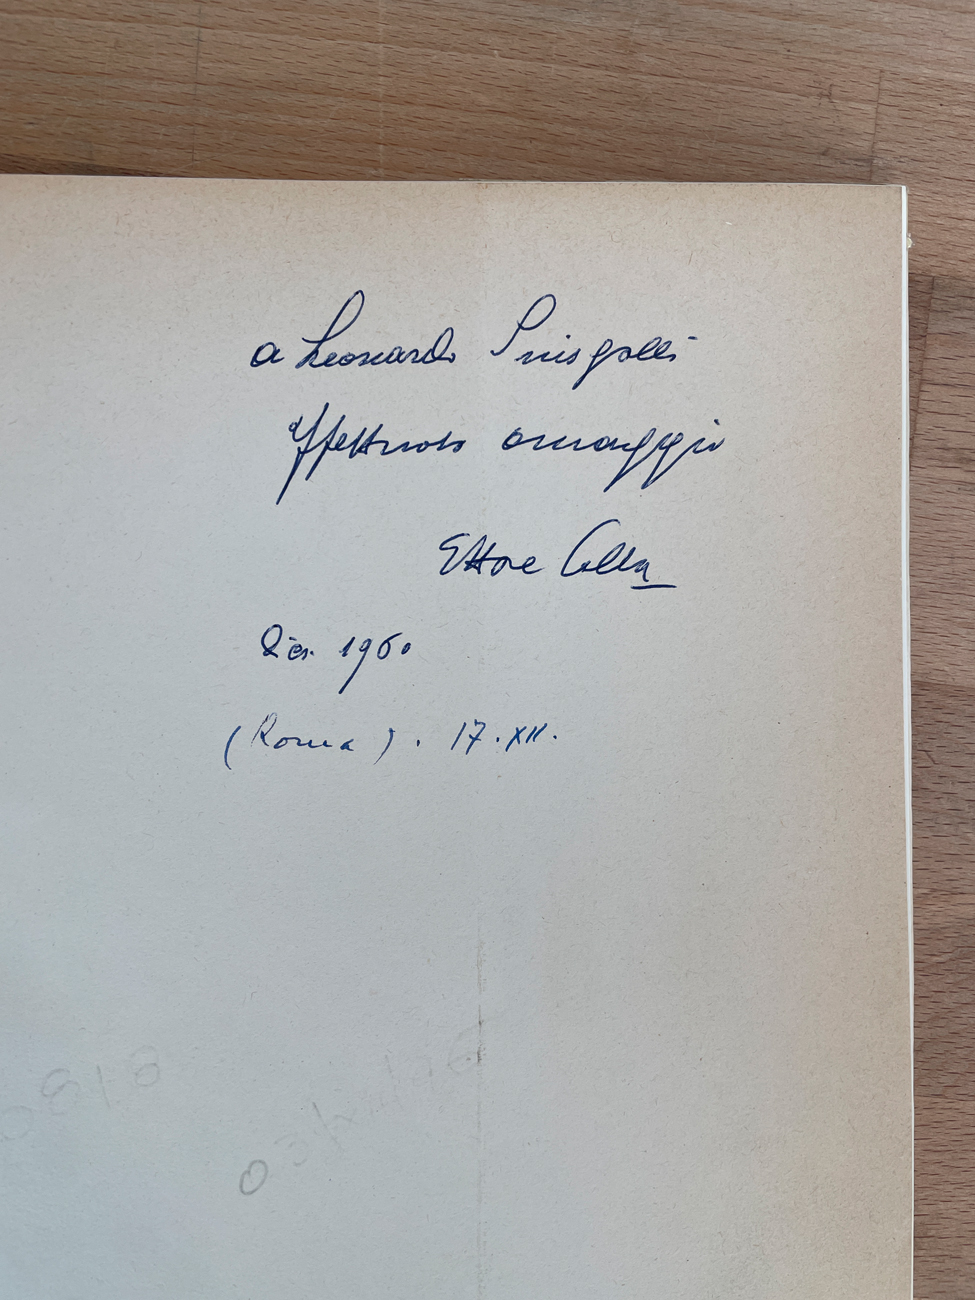 a Leonardo Sinisgalli
Affettuoso omaggio
Ettore Colla
Dic. 1960
(Roma). 17.XII.